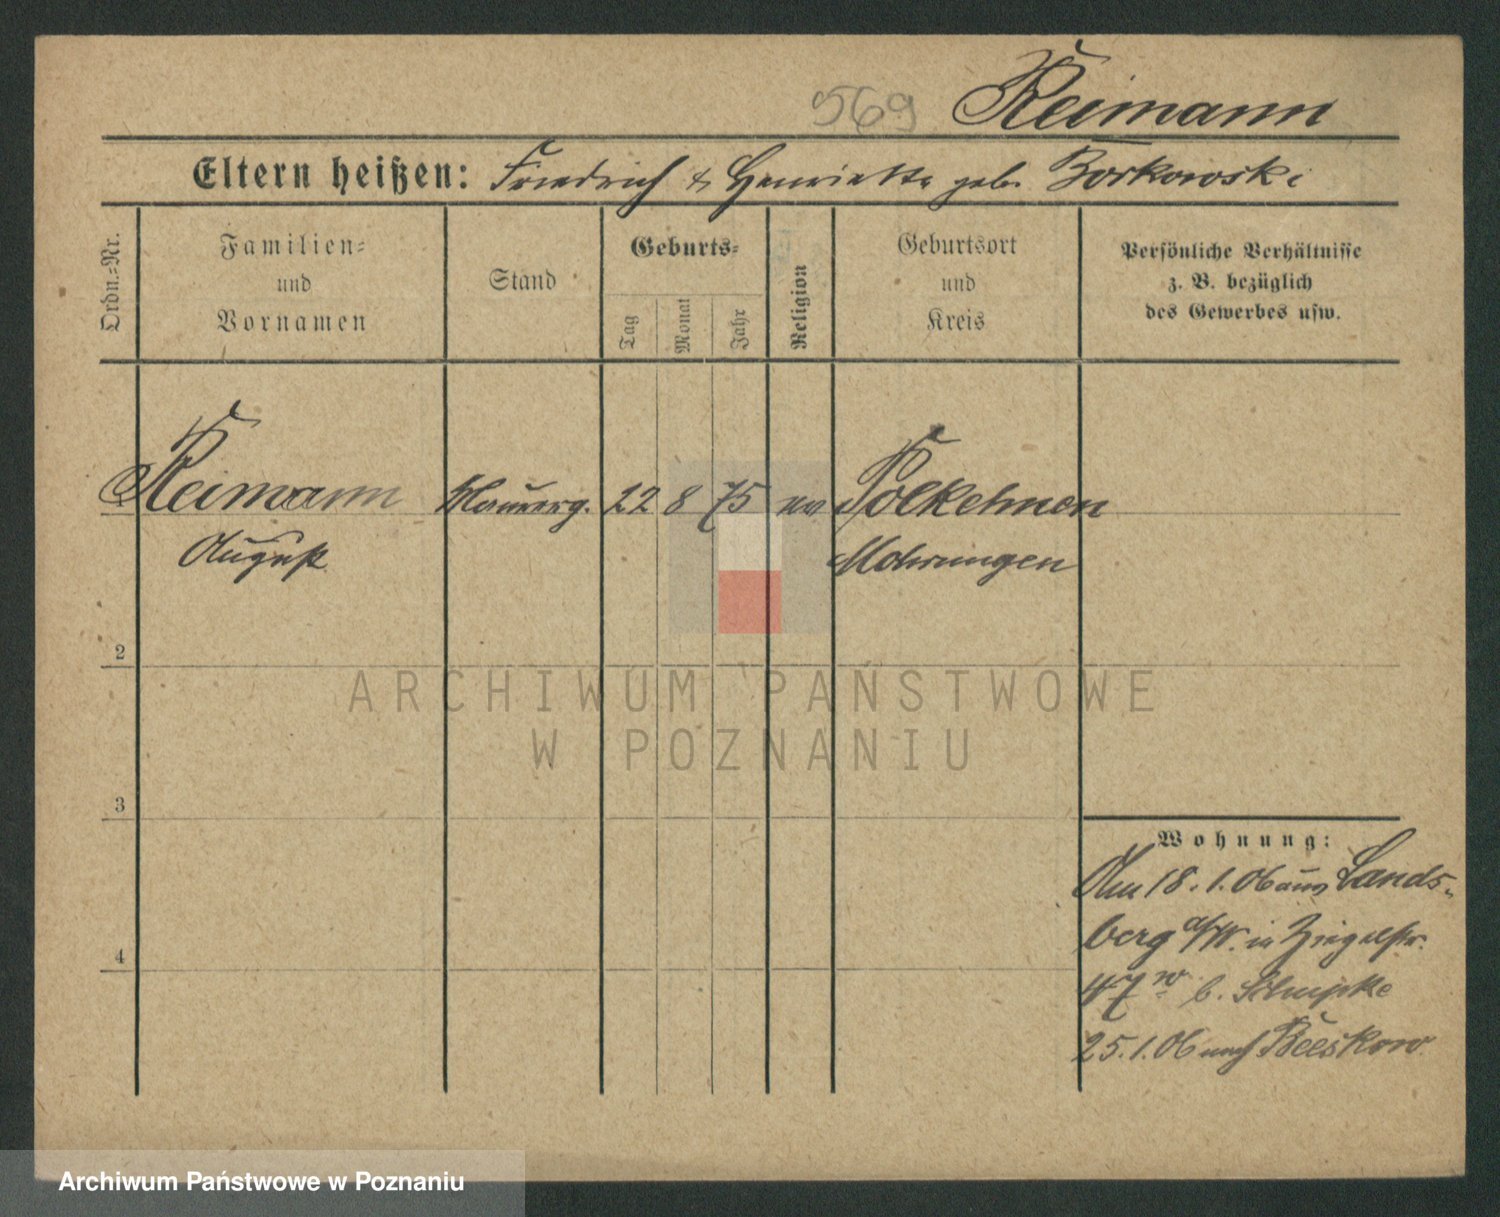 569 Reimann
Eltern heißen: Friedrich & Henriette geb. Borkowski
Ordn.=Nr.
Familien=
und
Vornamen
Stand
Geburts=
Tag
Monat
Jahr
Religion
Geburtsort
und
Kreis
Persönliche Verhältnisse
z. B. bezüglich
des Gewerbes usw.
1 Reimann Maurerg. 22 8 75 ev Polkehnen
August Mohrungen
2
3
4
ARCHIWUM PAŃSTWOWE
W POZNANIU
Wohnung:
Am 18.1.06 aus Lands-
berg a/W. in Ziegelstr.
47 b.
25.1.06 nach Beeskow
Archiwum Państwowe w Poznaniu